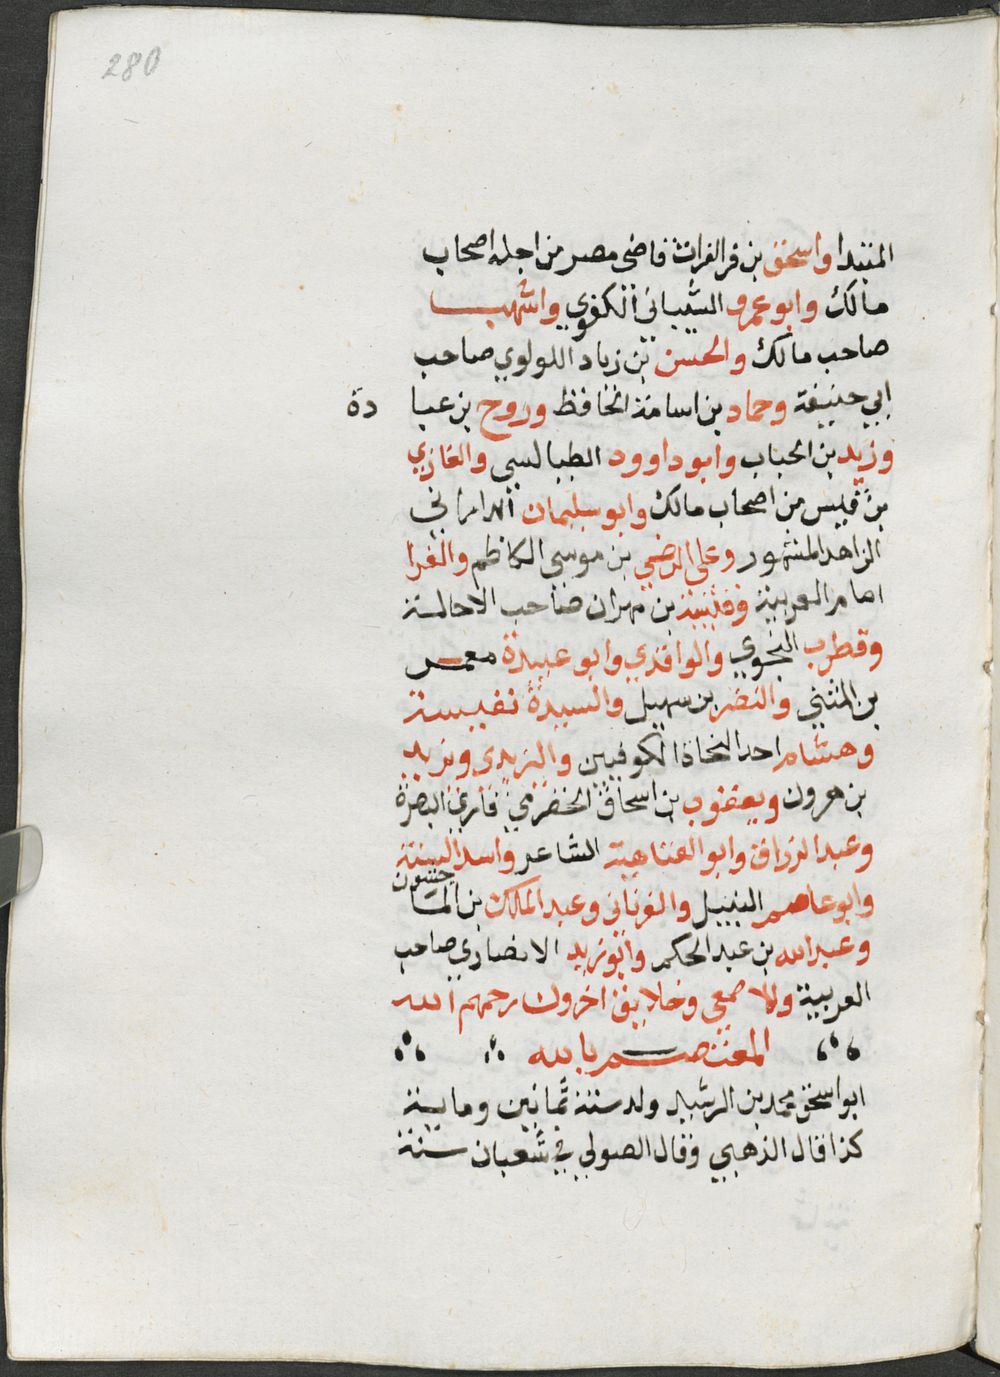 280
المبتدا واسحق بن فر الفرات قاضى مصر من اجلة اصحاب
مالك وابو عمرو الشيباني الكفوي واشهب
صاحب مالك والحسن بن زياد اللولوي صاحب
ابي حنيفة وحماد بن اسامة الحافظ وروح بن عبا دة
وزيد بن الحباب وابو داوود الطيالسي والغازي
بن قيس من اصحاب مالك وابو سليمان الداراني
الزاهد المشهور وعلى الرضي بن موسى الكاظم والفرا
امام العربية وقتيبة بن مهران صاحب الامالة
وقطرب النحوي والواقدي وابو عبيدة معمر
بن المثني والنضر بن سهيل والسيدة نفيسة
وهشام احد النحاذ الكوفيين واليزيدي ويزيد
بن هرون ويعقوب بن اسحاق الخضرمي قاري البصرة
وعبد الرزاق وابو العتاهية الشاعر واسد السنة
وابو عاصم النبيل والفريابى وعبد الملك بن الما جشون
وعبد الله بن عبد الحكم وابو زيد الانصاري صاحب
العربية وللاصمعي وخلايق اخرون رحمهم الله
المعتصم بالله
ابو اسحق محمد بن الرشيد ولد سنة ثمانين وماية
كذا قال الذهبي وقال الصولي في شعبان سنة